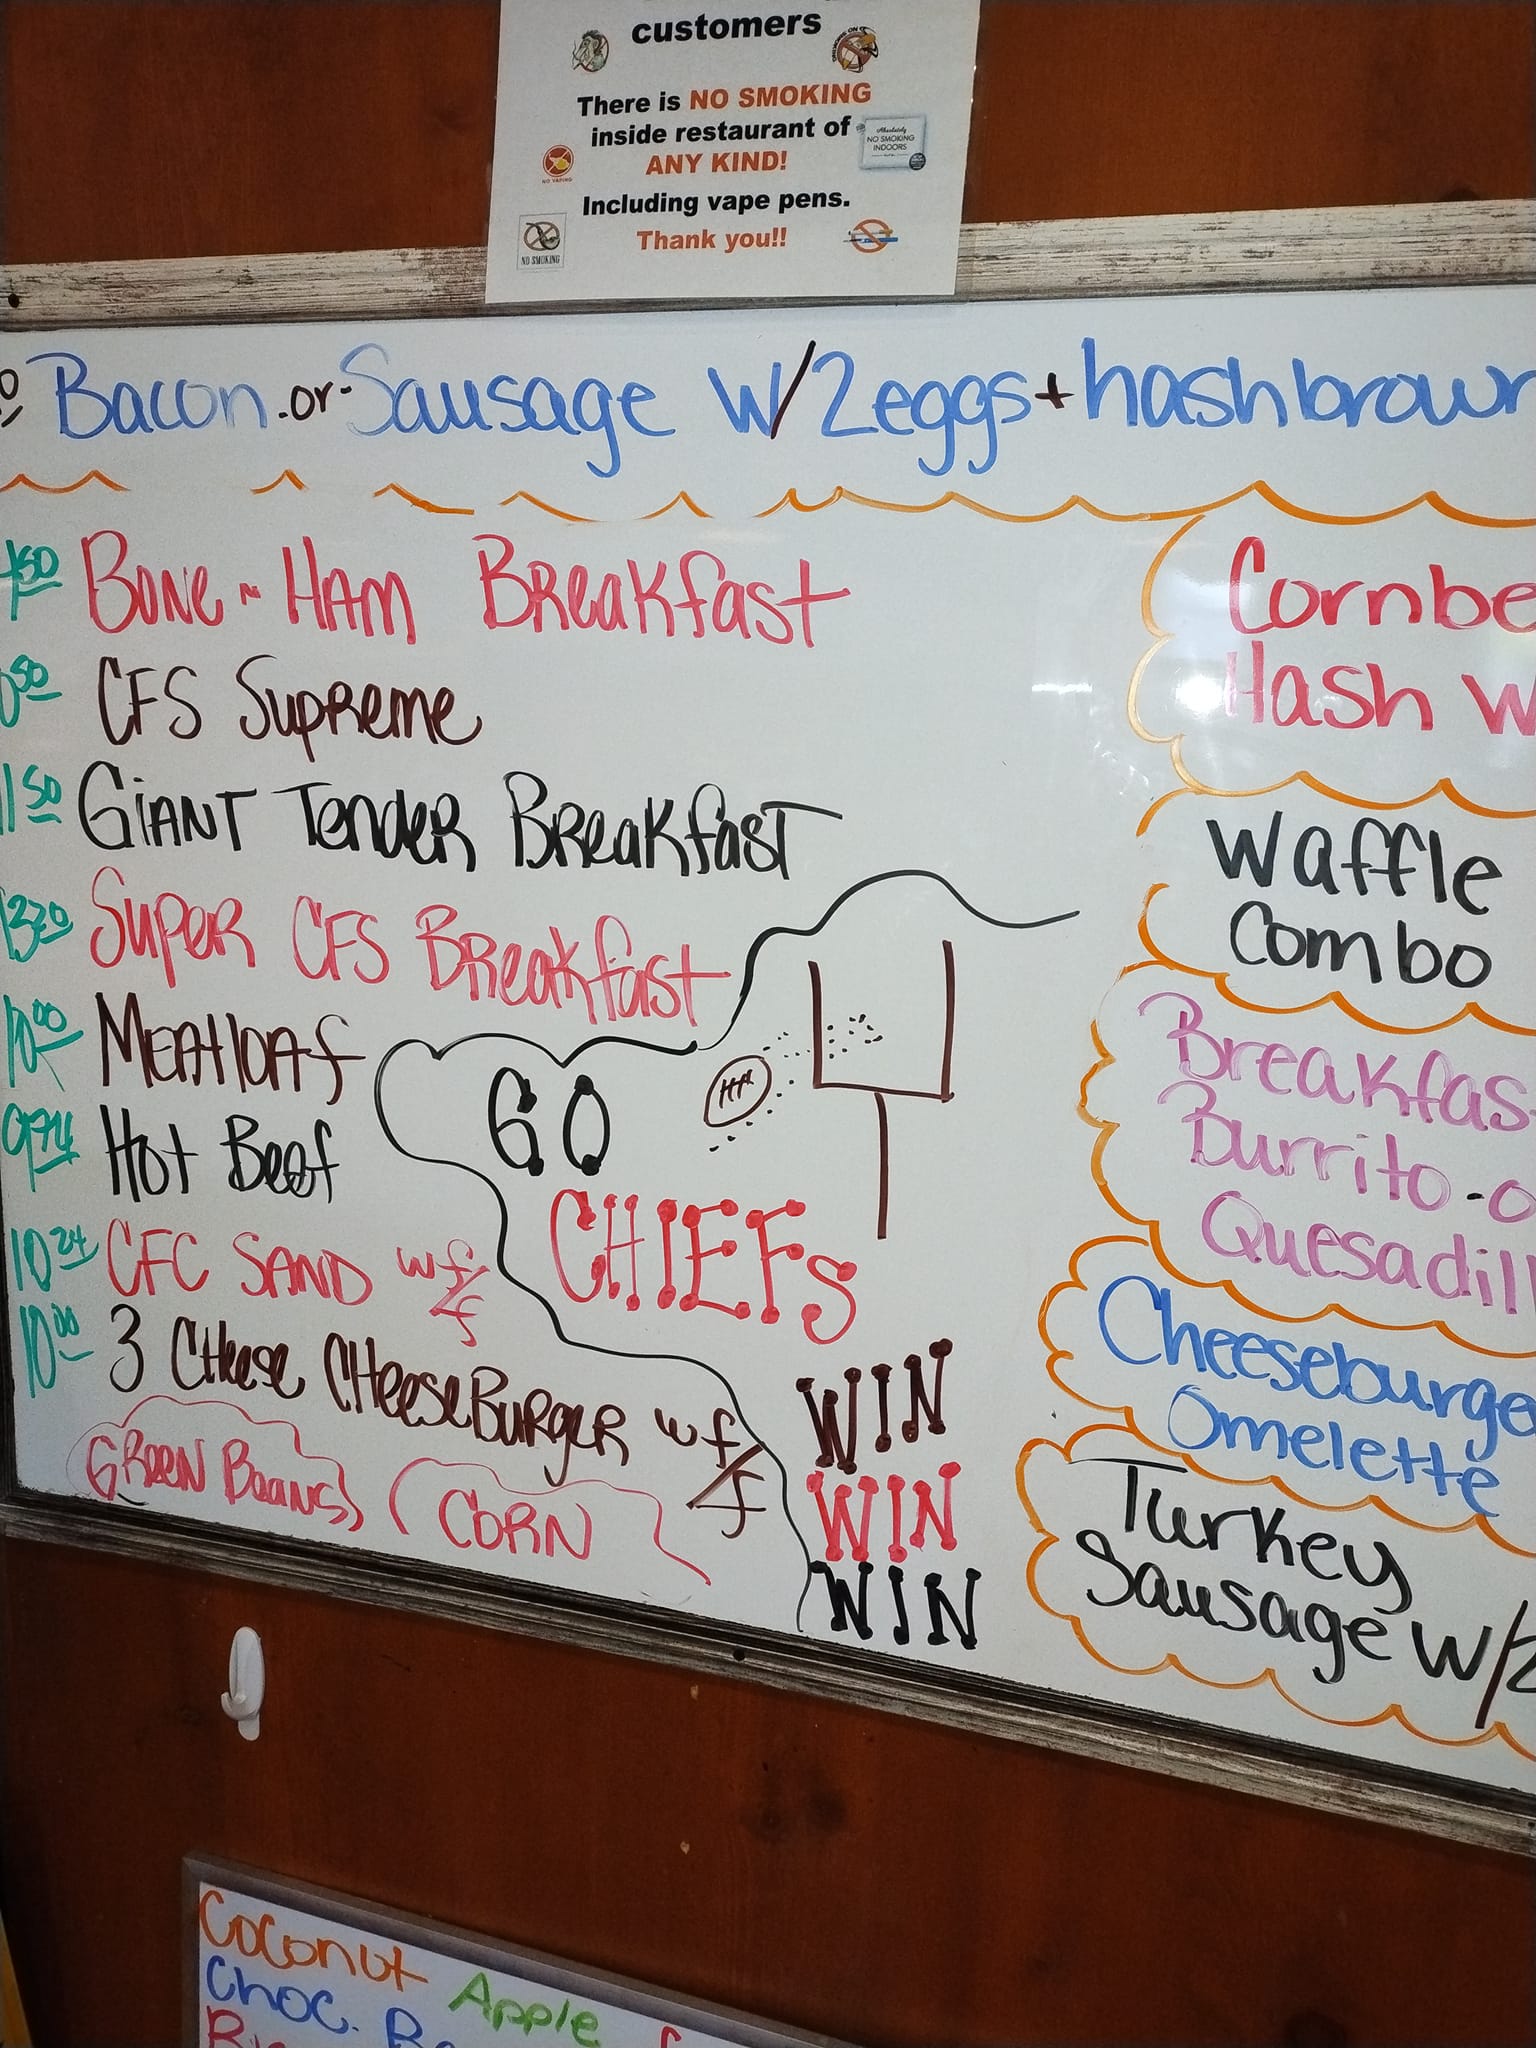 customers
There is NO SMOKING
inside restaurant of
ANY KIND!
Including vape pens.
Thank you!!
Absolutely
NO SMOKING
INDOORS
NO VAPING
NO SMOKING
Bacon -or- Sausage W/2eggs + hashbrown
Bone-N-Ham Breakfast
50 CFS Supreme
1150 Giant Tender Breakfast
Super CFS Breakfast
1000 Meatloaf
974 Hot Beef
1024 CFC Sand w f/f
1000 3 Cheese CheeseBurger w f/f
Green Beans
Corn
GO
CHIEFs
WIN
WIN
WIN
Cornbe
Hash w
Waffle
Combo
Breakfas
Burrito -o
Quesadill
Cheeseburge
Omelette
Turkey
Sausage w/2
Coconut Apple
Choc.